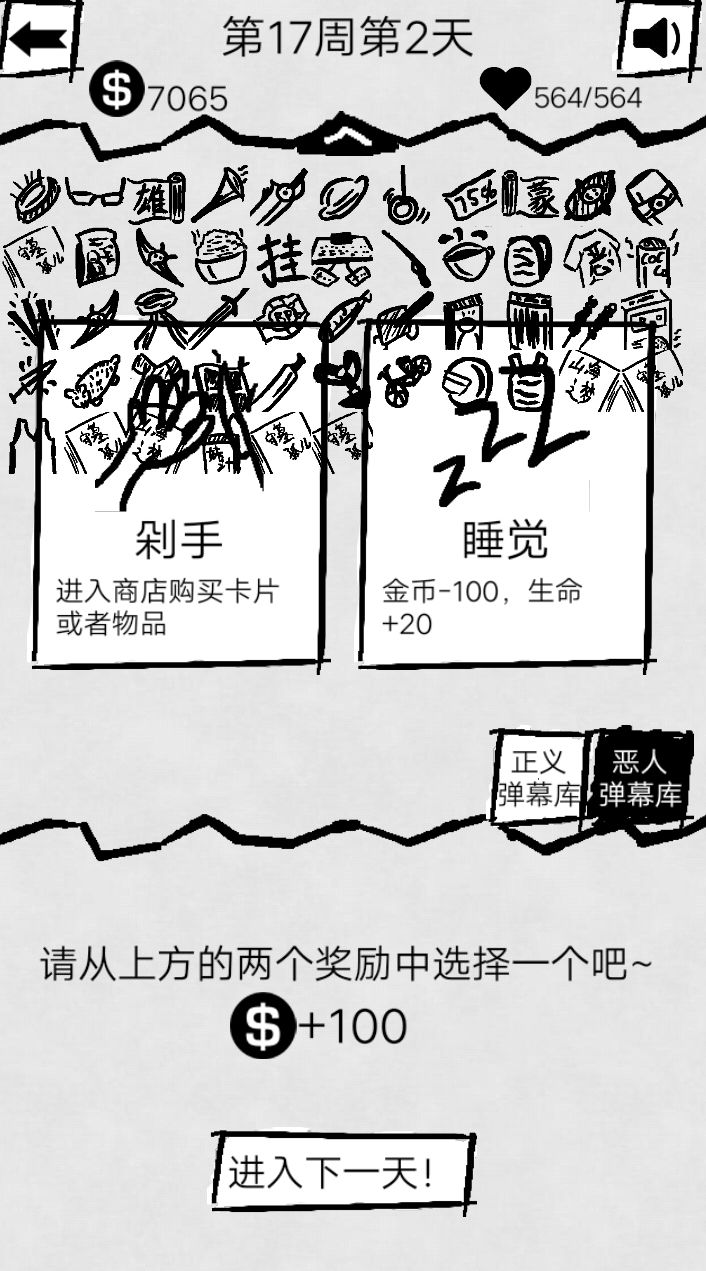 第17周第2天
$7065
564/564
雄
75%
蒙
挂
恶
山海
之梦
剁手
睡觉
进入商店购买卡片
或者物品
金币-100，生命
+20
正义
弹幕库
恶人
弹幕库
请从上方的两个奖励中选择一个吧~
$+100
进入下一天！